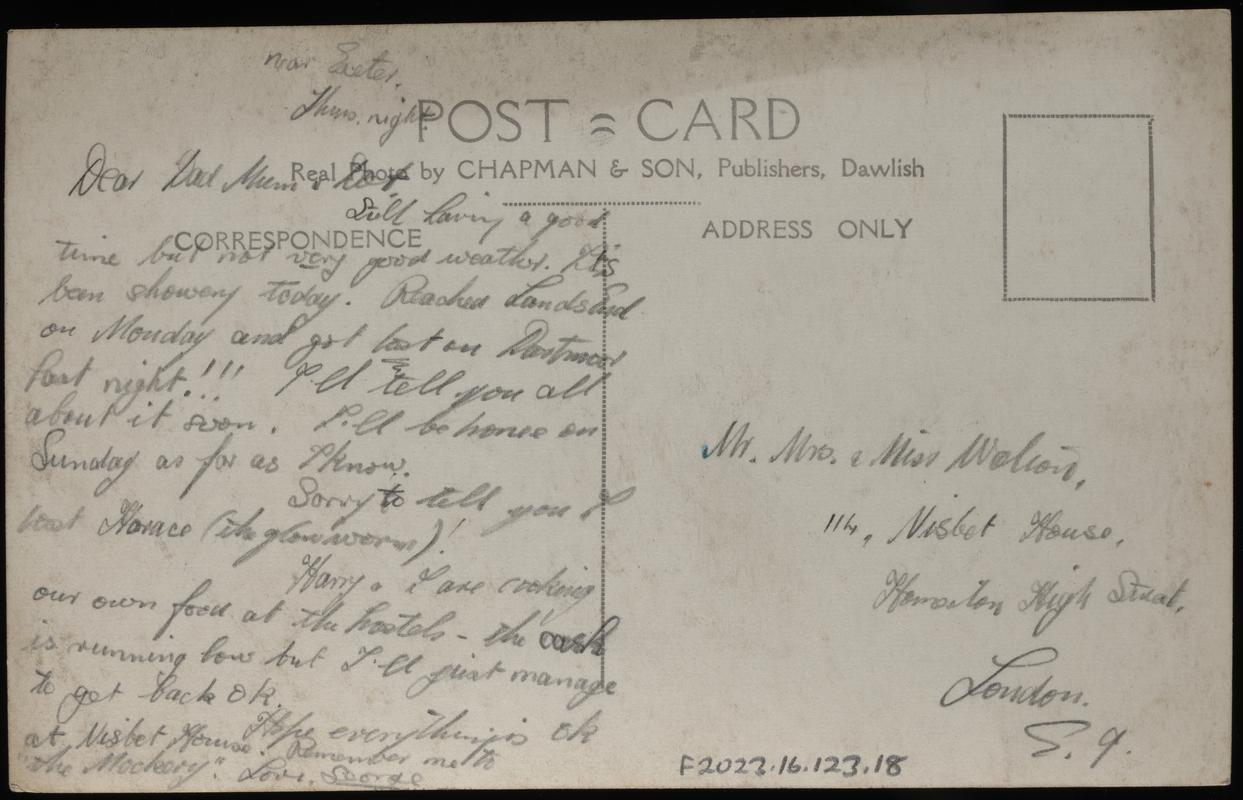 near Exeter,
Thurs. night
POST = CARD
Real Photo by CHAPMAN & SON, Publishers, Dawlish
CORRESPONDENCE
ADDRESS ONLY
Dear Dad Mum &
Still having a good
time but not very good weather. It's
been showery today. Reached Lands End
on Monday and got lost on Dartmoor
last night!!! I'll tell you all
about it soon. I'll be home on
Sunday as far as I know.
Sorry to tell you I
lost Horace (the glow worm)!
Harry & I are cooking
our own food at the hostels - the cash
is running low but I'll just manage
to get back OK.
Hope everything is OK
at Nisbet House. Remember me to
"the Mockery". Love, George
Mr. Mrs. & Miss Walton,
114, Nisbet House,
Homerton High Street,
London.
E. 9.
F2023.16.123.18